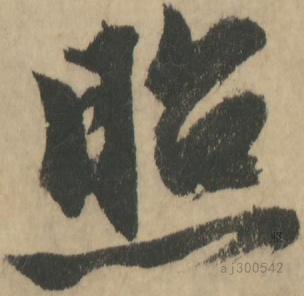 照
aj300542